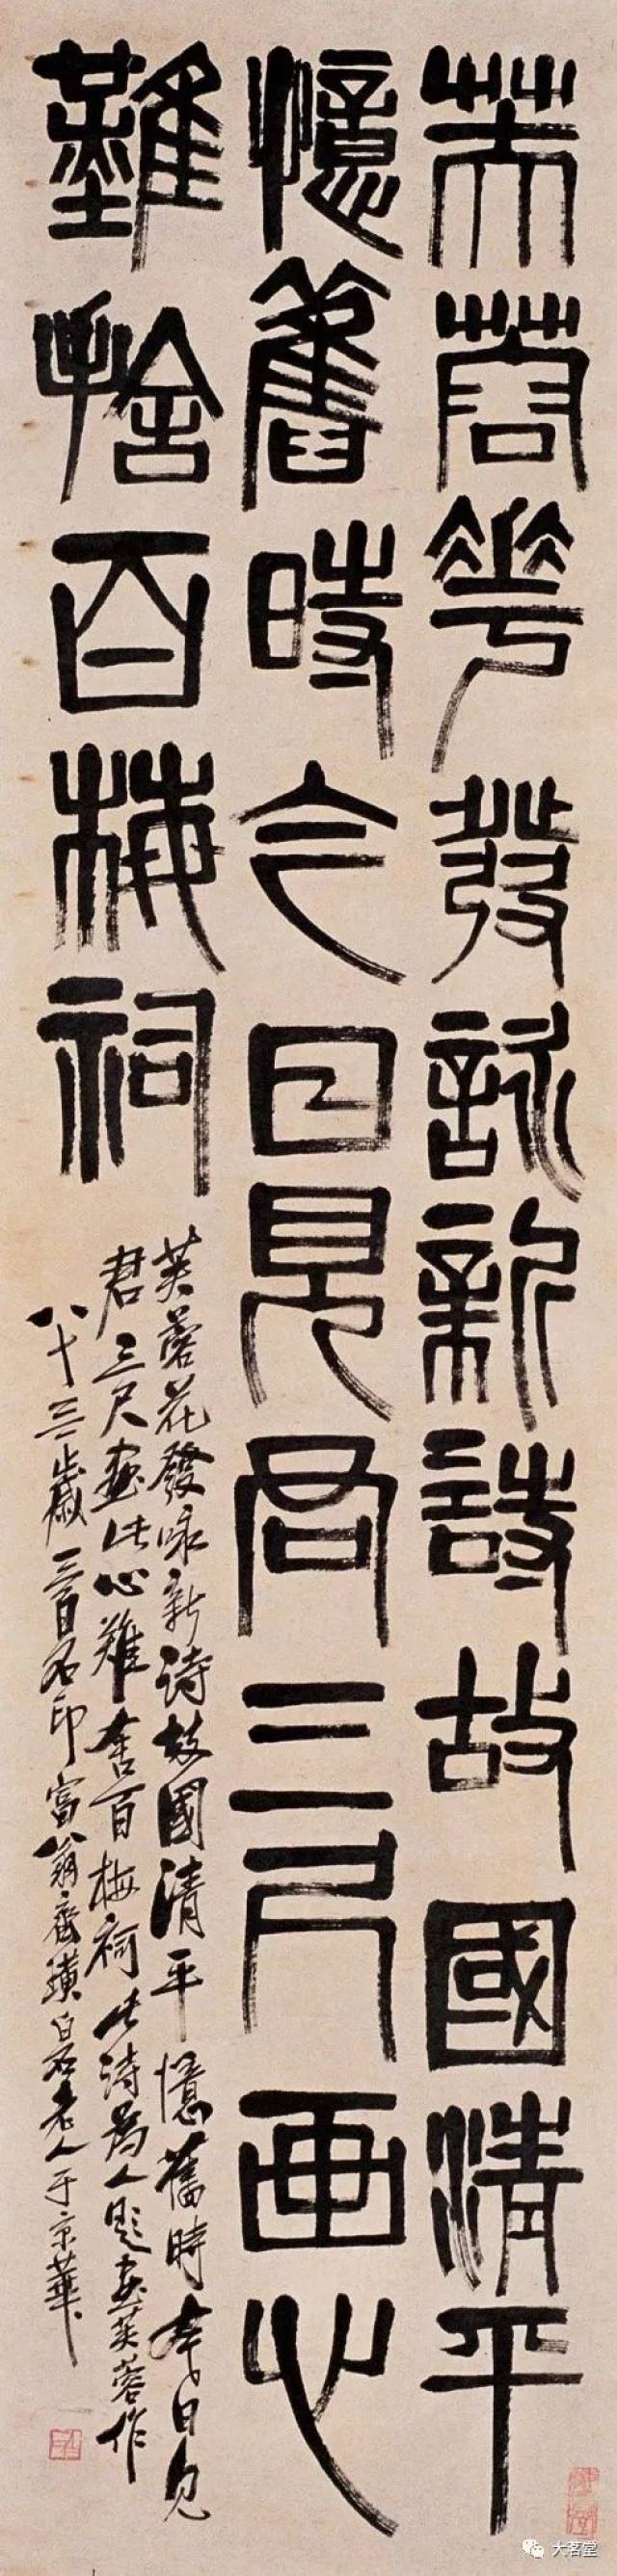 芙蓉花發詠新詩故國清平
憶舊時今日見君三尺画心
難捨百梅祠
芙蓉花發咏新詩故國清平憶舊時今日見
君三尺画此心難舍百梅祠此詩為人題画芙蓉作
八十三歲三百石印富翁齊璜白石老人于京華
大茗堂